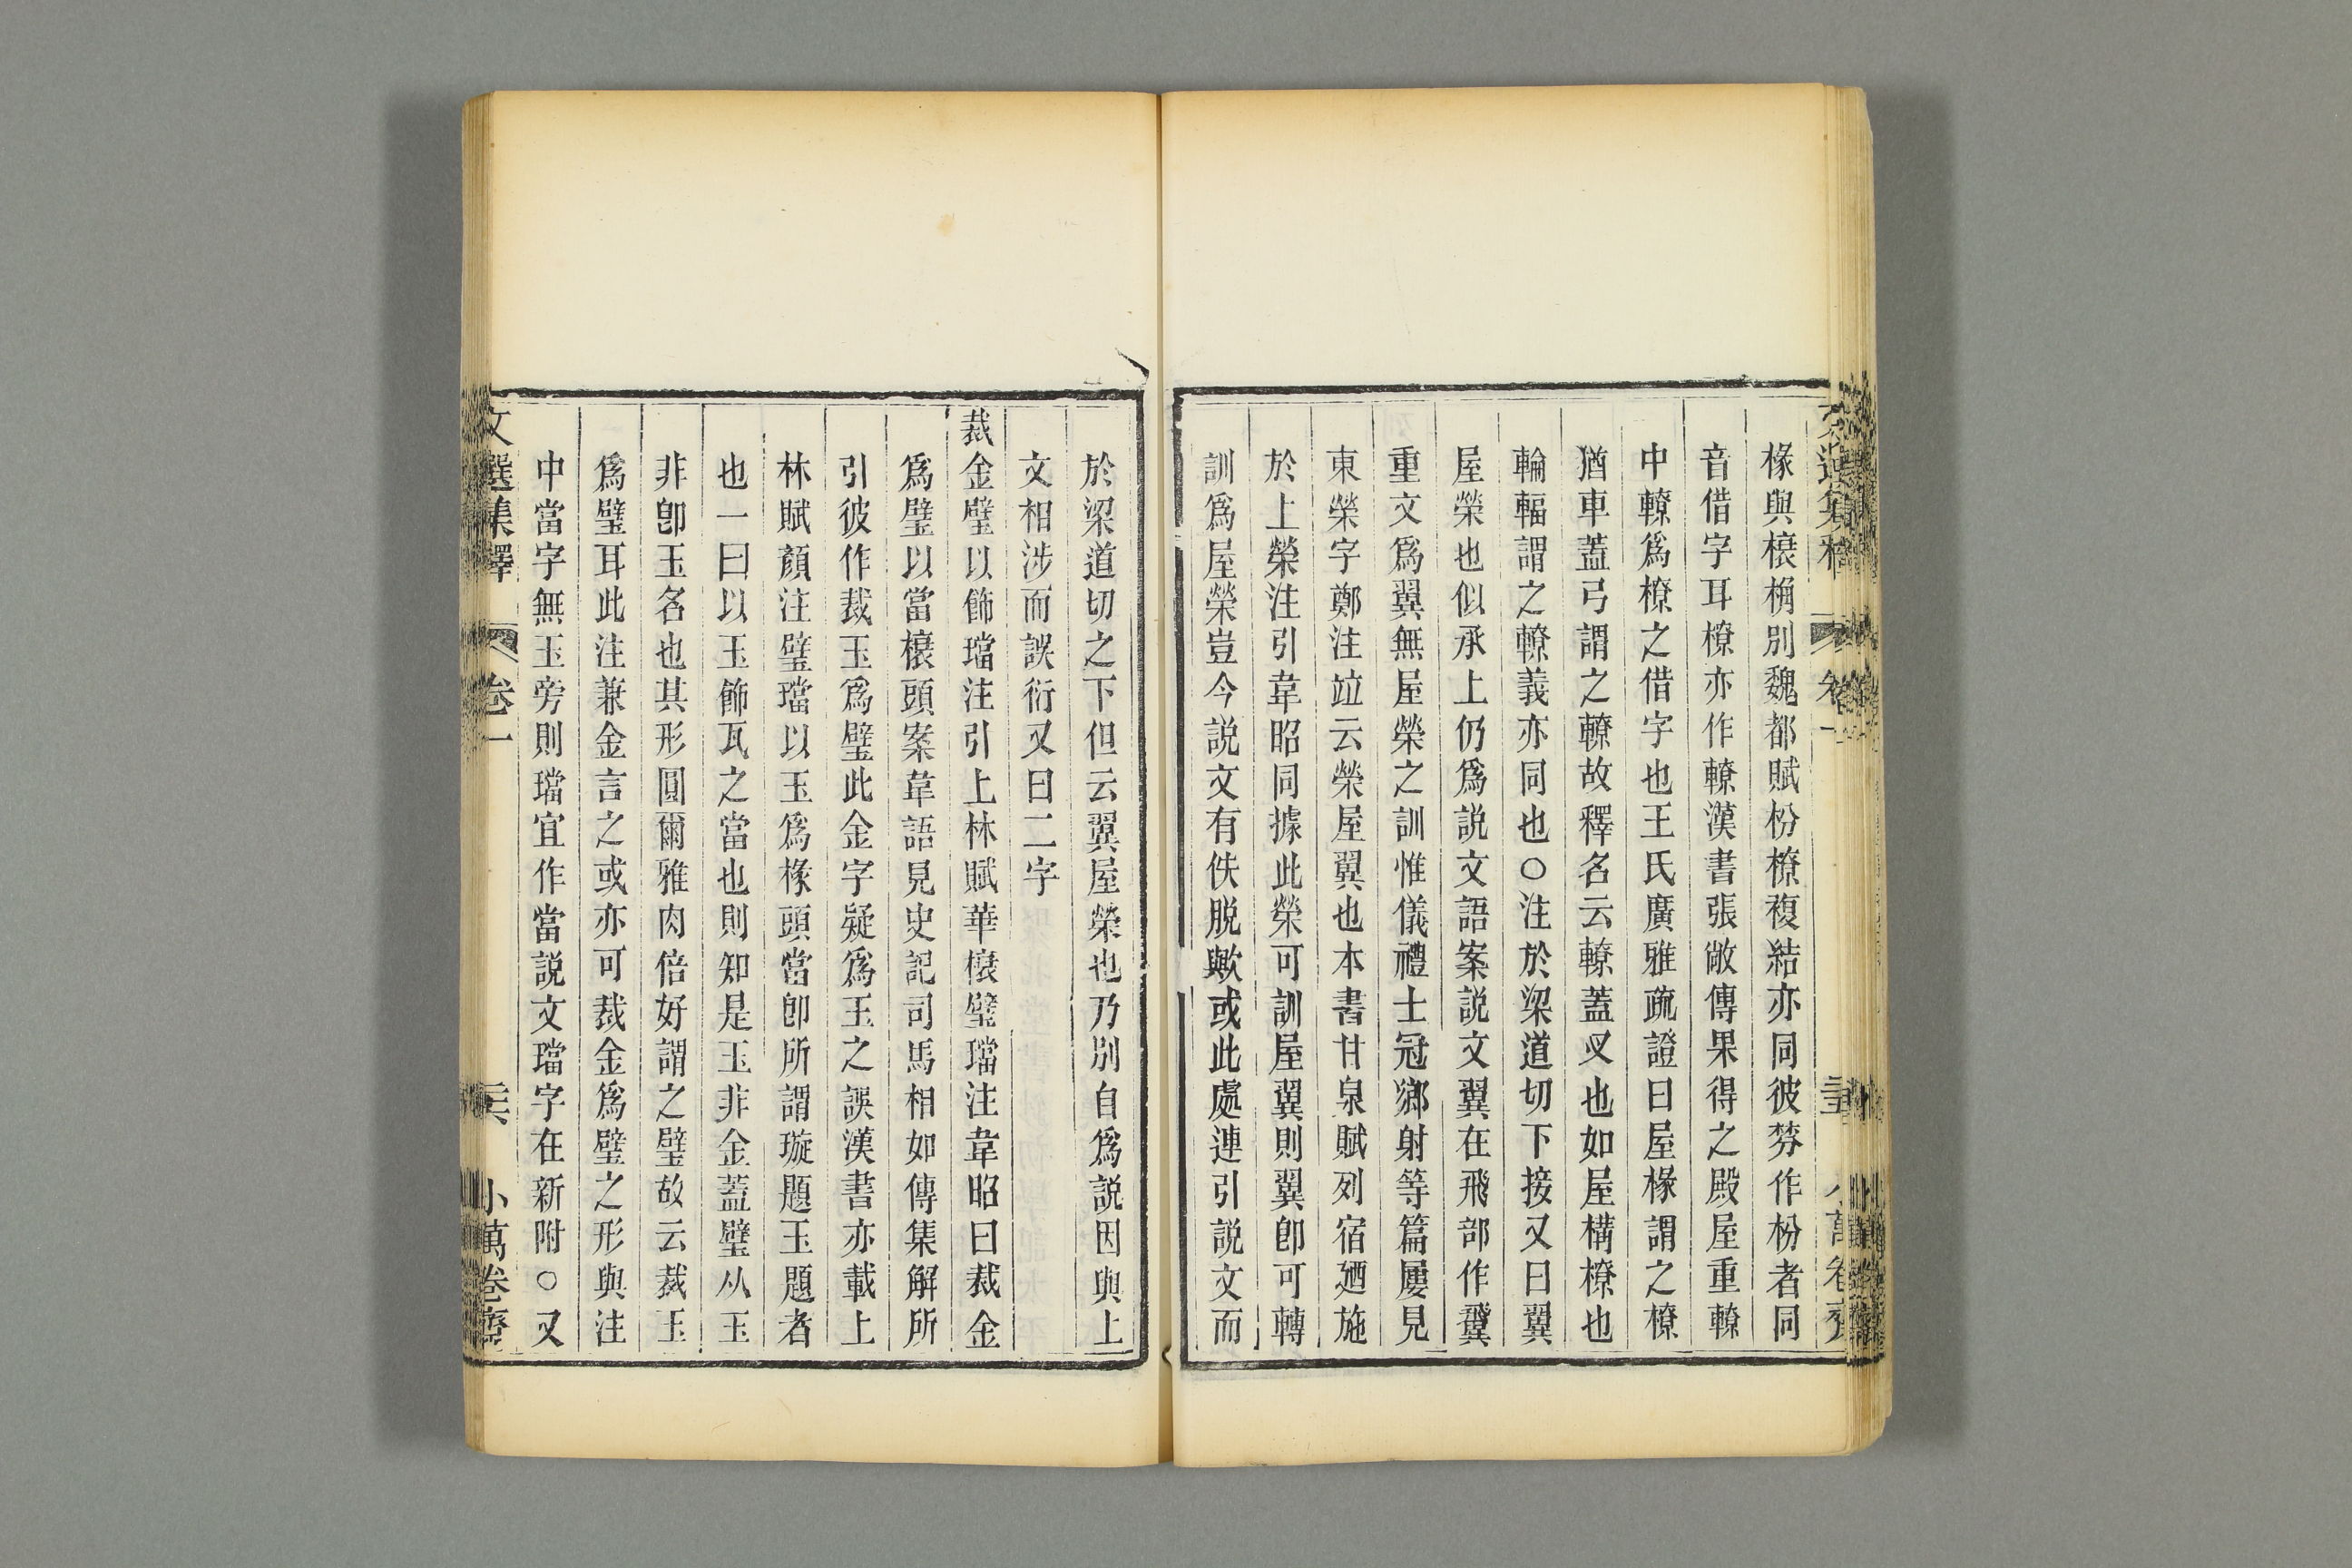 椽與榱桷別魏都賦枌橑複結亦同彼棼作枌者同
音借字耳橑亦作轑漢書張敞傳果得之殿屋重轑
中轑爲橑之借字也王氏廣雅疏證曰屋椽謂之橑
猶車蓋弓謂之轑故釋名云轑蓋叉也如屋構橑也
輪輻謂之轑義亦同也○注於梁道切下接又曰翼
屋榮也似承上仍爲說文語案說文翼在飛部作䨇
重文爲翼無屋榮之訓惟儀禮士冠鄉射等篇屢見
東榮字鄭注竝云榮屋翼也本書甘泉賦列宿廼施
於上榮注引韋昭同據此榮可訓屋翼則翼卽可轉
訓爲屋榮豈今說文有佚脫歟或此處連引說文而
於梁道切之下但云翼屋榮也乃別自爲說因與上
文相涉而誤衍又曰二字
裁金璧以飾璫注引上林賦華榱璧璫注韋昭曰裁金
爲璧以當榱頭案韋語見史記司馬相如傳集解所
引彼作裁玉爲璧此金字疑爲玉之誤漢書亦載上
林賦顏注璧璫以玉爲椽頭當卽所謂璇題玉題者
也一曰以玉飾瓦之當也則知是玉非金蓋璧从玉
非卽玉名也其形圓爾雅肉倍好謂之璧故云裁玉
爲璧耳此注兼金言之或亦可裁金爲璧之形與注
中當字無玉旁則璫宜作當說文璫字在新附○又
文選集釋 卷一 三六 小萬卷齋